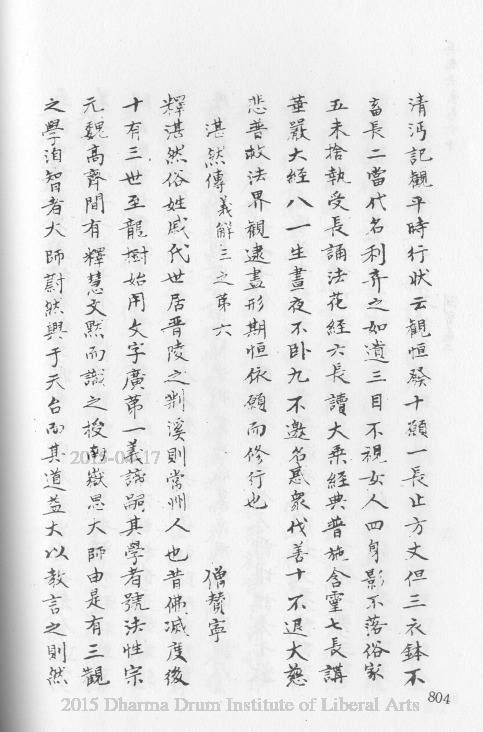 清沔記觀平時行狀云觀恒發十願一長止方丈但三衣鉢不
畜長二當代名利弃之如遺三目不視女人四身影不落俗家
五未捨執受長誦法花經六長讀大乘經典普施含靈七長講
華嚴大經八一生晝夜不卧九不邀名惑衆伐善十不退大慈
悲普救法界觀逮盡形期恒依願而修行也
湛然傳 義解三之第六 僧贊寧
釋湛然俗姓戚氏世居晉陵之荆溪則常州人也昔佛滅度後
十有三世至龍樹始用文字廣第一義諦嗣其學者號法性宗
元魏高齊間有釋慧文默而識之授南嶽思大師由是有三觀
之學洎智者大師蔚然興于天台而其道益大以教言之則然
804
2015 Dharma Drum Institute of Liberal Arts